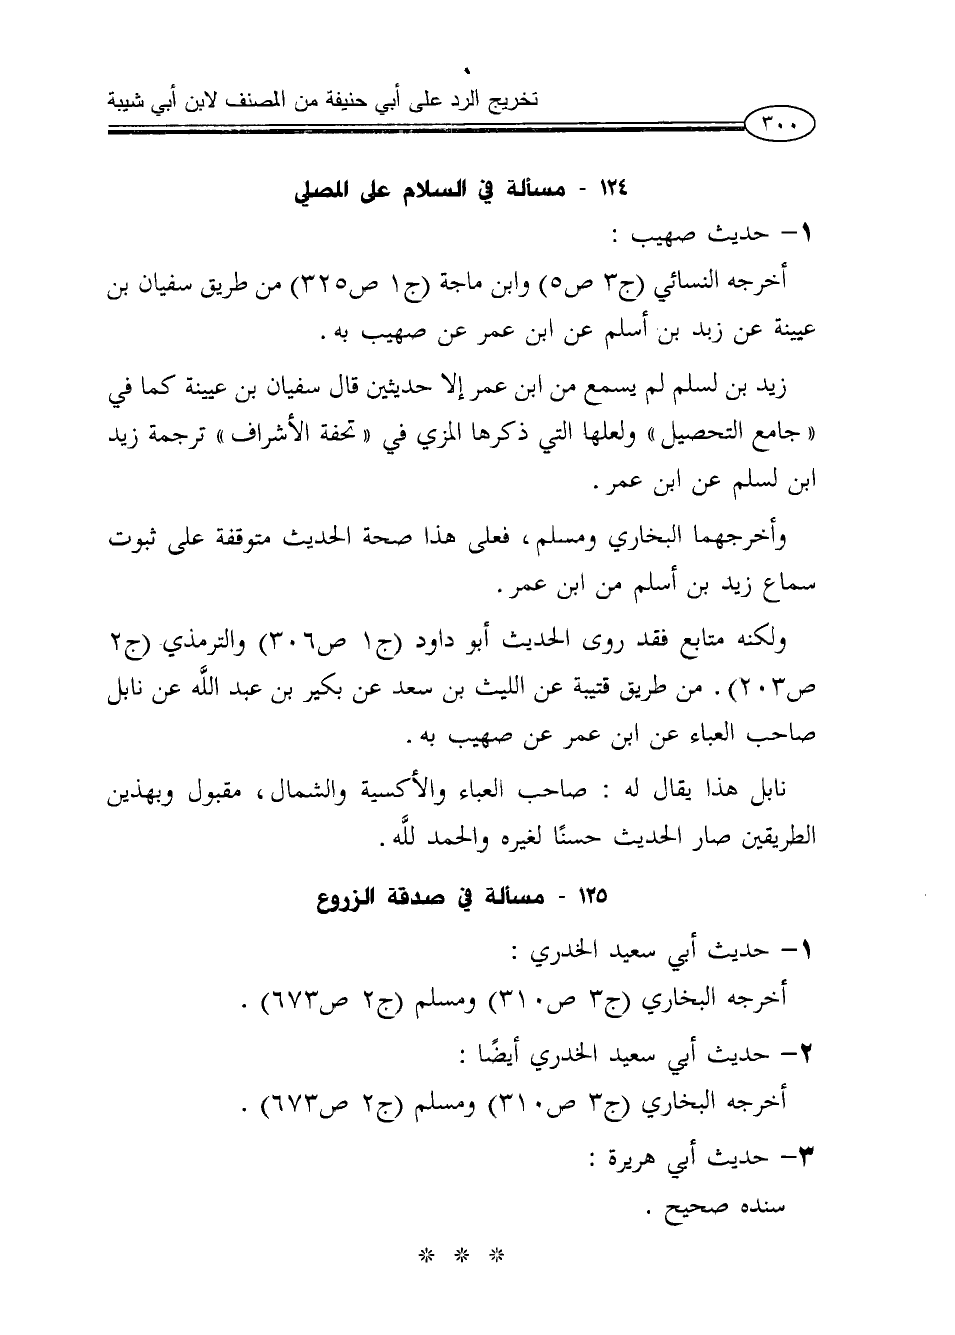 تخريج الرد على أبي حنيفة من المصنف لابن أبي شيبة
٣٠٠
١٢٤ - مسألة في السلام على المصلي
١- حديث صهيب :
أخرجه النسائي (ج٣ ص٥) وابن ماجة (ج١ ص٣٢٥) من طريق سفيان بن
عيينة عن زبد بن أسلم عن ابن عمر عن صهيب به .
زيد بن لسلم لم يسمع من ابن عمر إلا حديثين قال سفيان بن عيينة كما في
« جامع التحصيل » ولعلها التي ذكرها المزي في « تحفة الأشراف » ترجمة زيد
ابن لسلم عن ابن عمر .
وأخرجهما البخاري ومسلم ، فعلى هذا صحة الحديث متوقفة على ثبوت
سماع زيد بن أسلم من ابن عمر .
ولكنه متابع فقد روى الحديث أبو داود (ج١ ص٣٠٦) والترمذي (ج٢
ص٢٠٣) . من طريق قتيبة عن الليث بن سعد عن بكير بن عبد اللَّه عن نابل
صاحب العباء عن ابن عمر عن صهيب به .
نابل هذا يقال له : صاحب العباء والأكسية والشمال ، مقبول وبهذين
الطريقين صار الحديث حسنًا لغيره والحمد للَّه .
١٢٥ - مسألة في صدقة الزروع
١- حديث أبي سعيد الخدري :
أخرجه البخاري (ج٣ ص٣١٠) ومسلم (ج٢ ص٦٧٣) .
٢- حديث أبي سعيد الخدري أيضًا :
أخرجه البخاري (ج٣ ص٣١٠) ومسلم (ج٢ ص٦٧٣) .
٣- حديث أبي هريرة :
سنده صحيح .
* * *